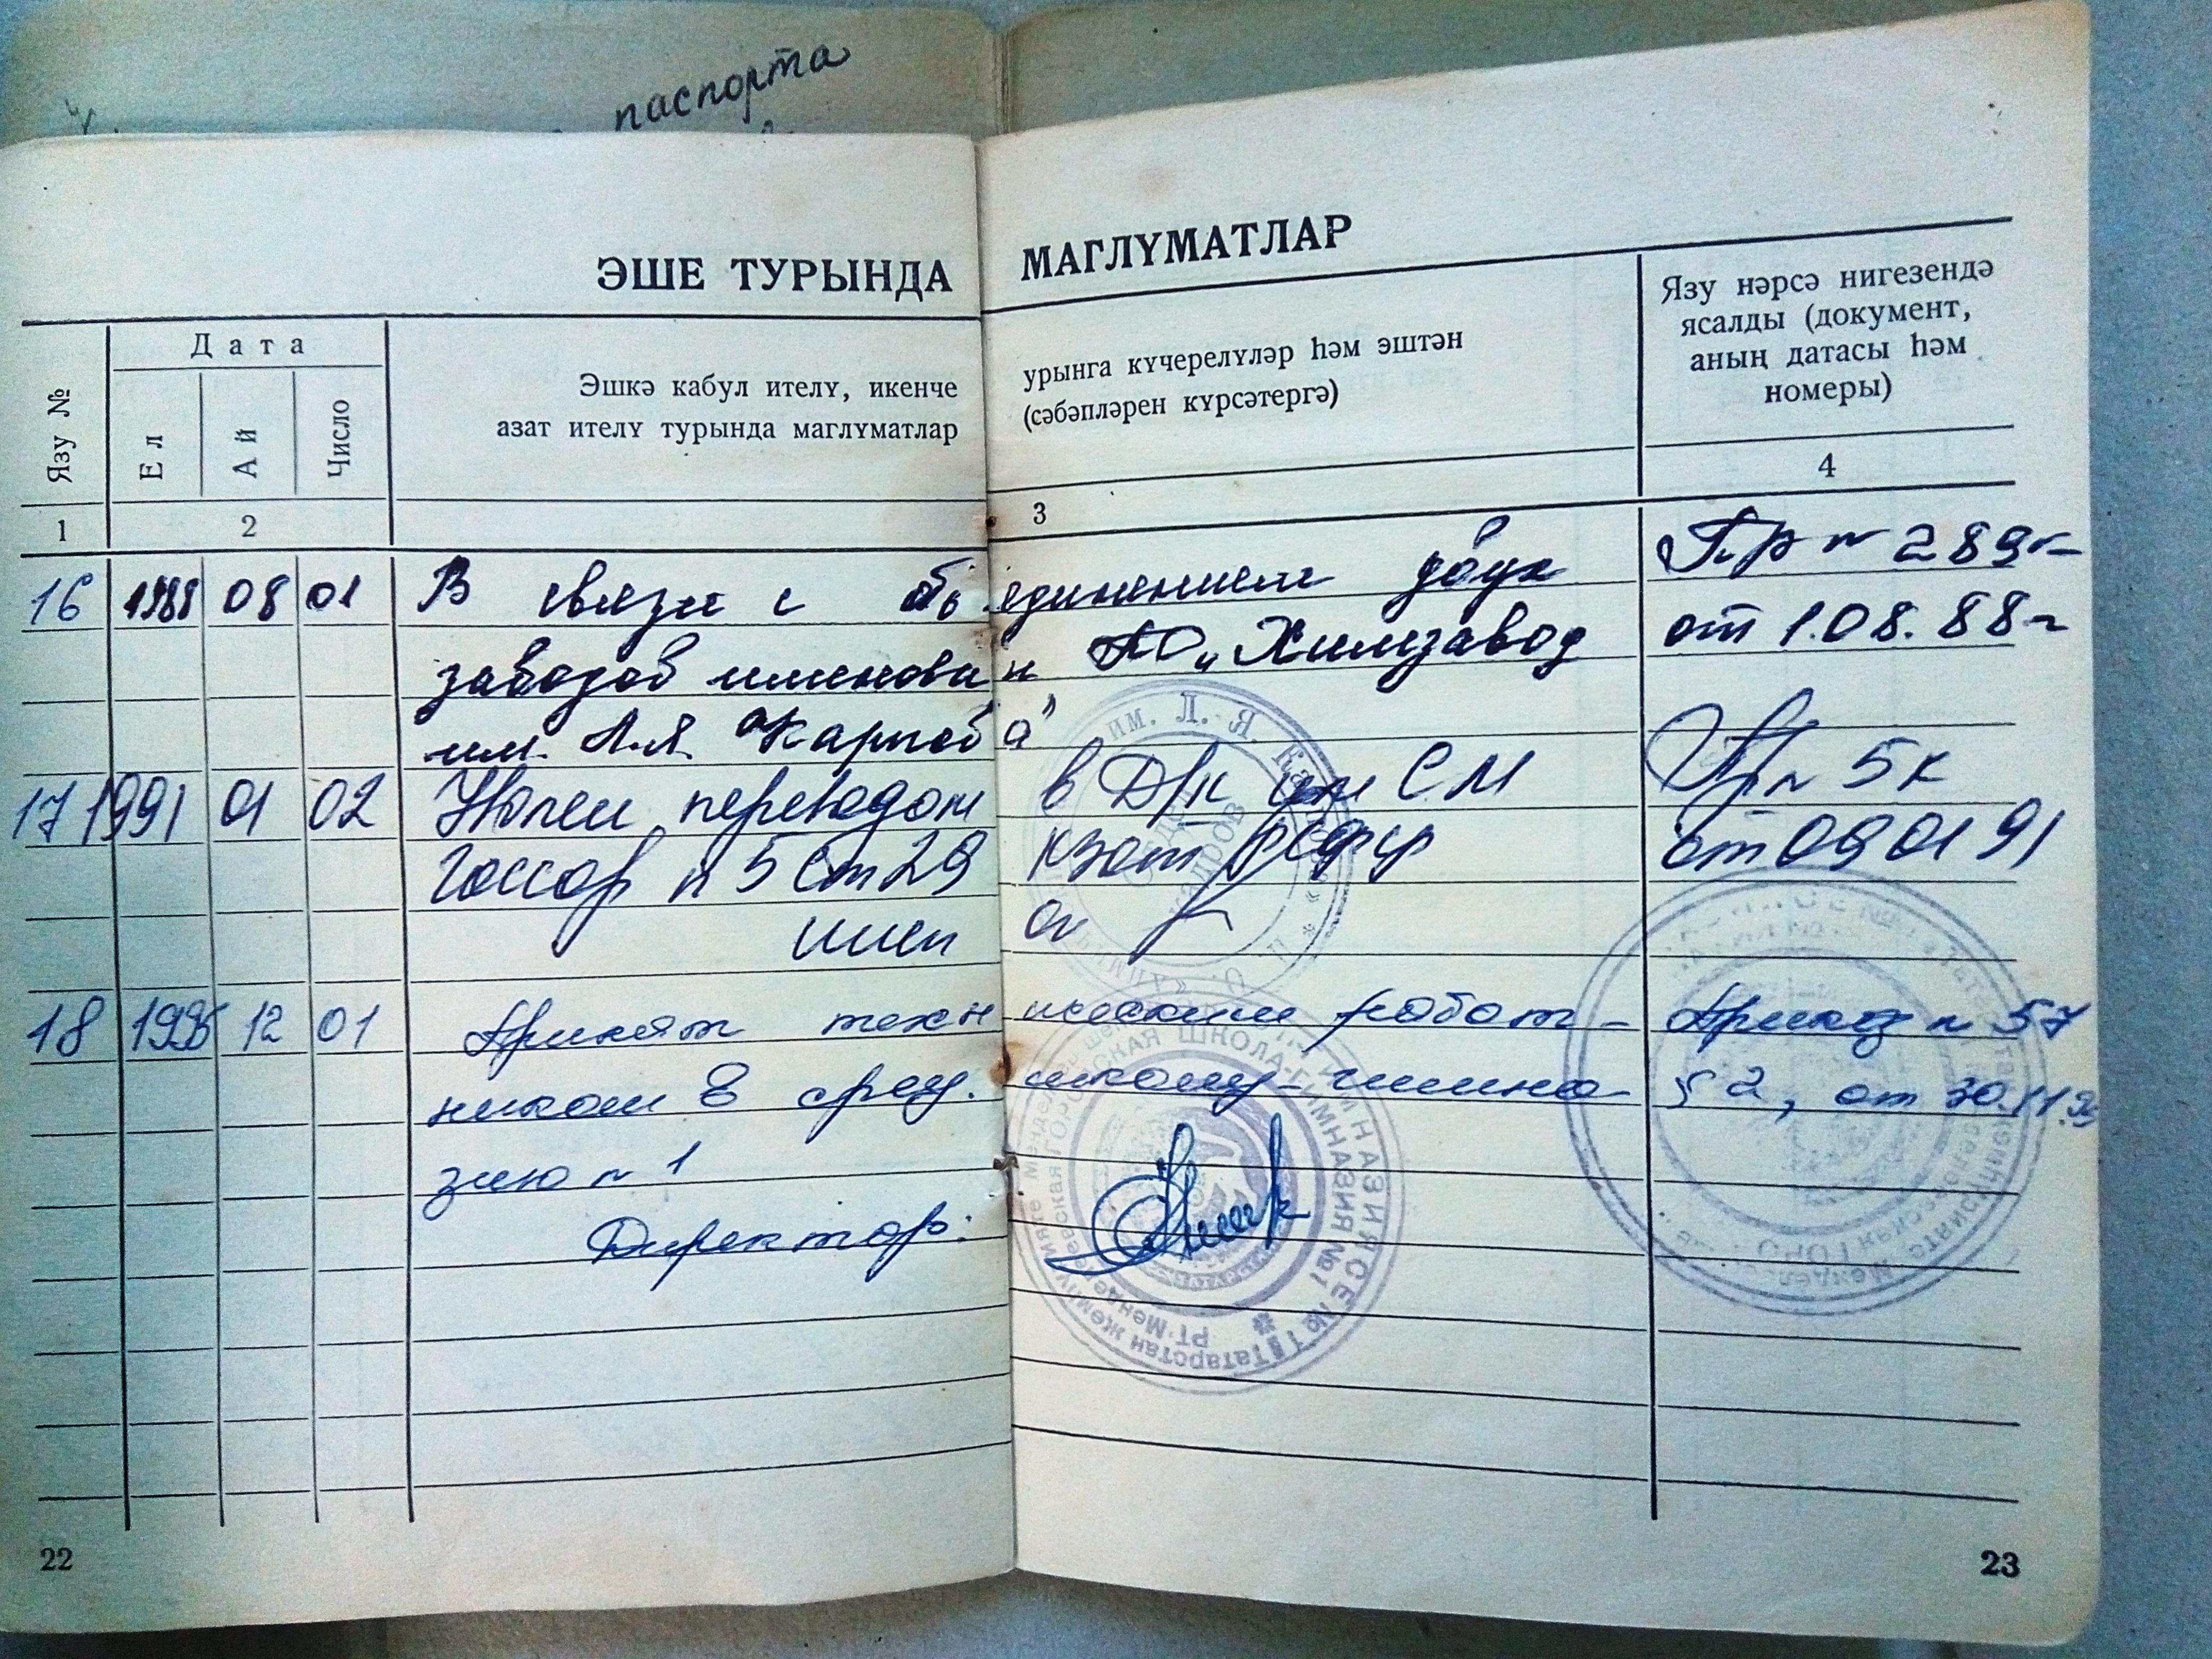 паспорта
ЭШЕ ТУРЫНДА МАГЛҮМАТЛАР
Язу №
Дата
Ел
Ай
Число
Эшкә кабул ителү, икенче урынга күчерелүләр һәм эштән
азат ителү турында маглүматлар (сәбәпләрен күрсәтергә)
Язу нәрсә нигезендә
ясалды (документ,
аның датасы һәм
номеры)
1 2 3 4
16 1988 08 01 В связи с объединением двух Пр № 289к
заводов именован ПО „Химзавод от 1.08.88г
им. Л.Я. Карпова"
17 1991 01 02 Уволен переводом в Д/к им С М Пр № 5к
п 5 ст 29 КЗот РСФСР от 09 01 91
18 12 01 Принят техническим работ- Приказ № 57
ником в сред. школу-гимна- § 2, от 30.11.
зию № 1
Директор:
им. Л. Я. Карпова
кадров
ШКОЛА-ГИМНАЗИЯ №1
ГИМНАЗИЯСЕ №1
Татарстан
РТ
22
23